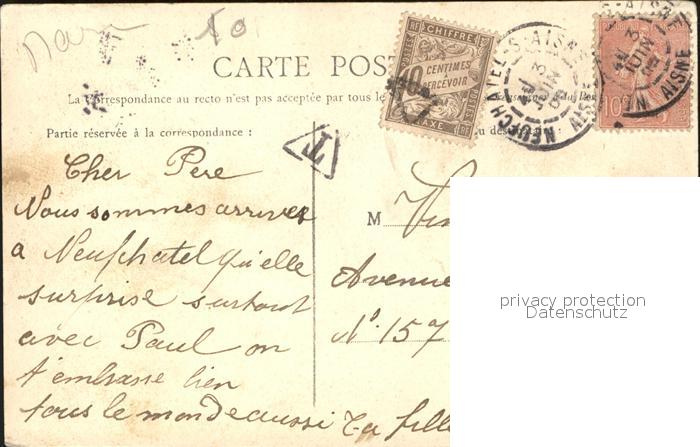 CARTE POS
CHIFFRE
10 CENTIMES A PERCEVOIR
TAXE
NEUFCHATEL-S-AISNE
AISNE
10c
La Correspondance au recto n'est pas acceptée par tous le
Partie réservée à la correspondance :
du destinataire :
T
Cher Pere
Nous sommes arrives
a Neufchatel qu'elle
surprise surtout
avec Paul on
t'embrasse bien
tous le monde aussi Ta fille
M
Avenue
No. 157
privacy protection
Datenschutz